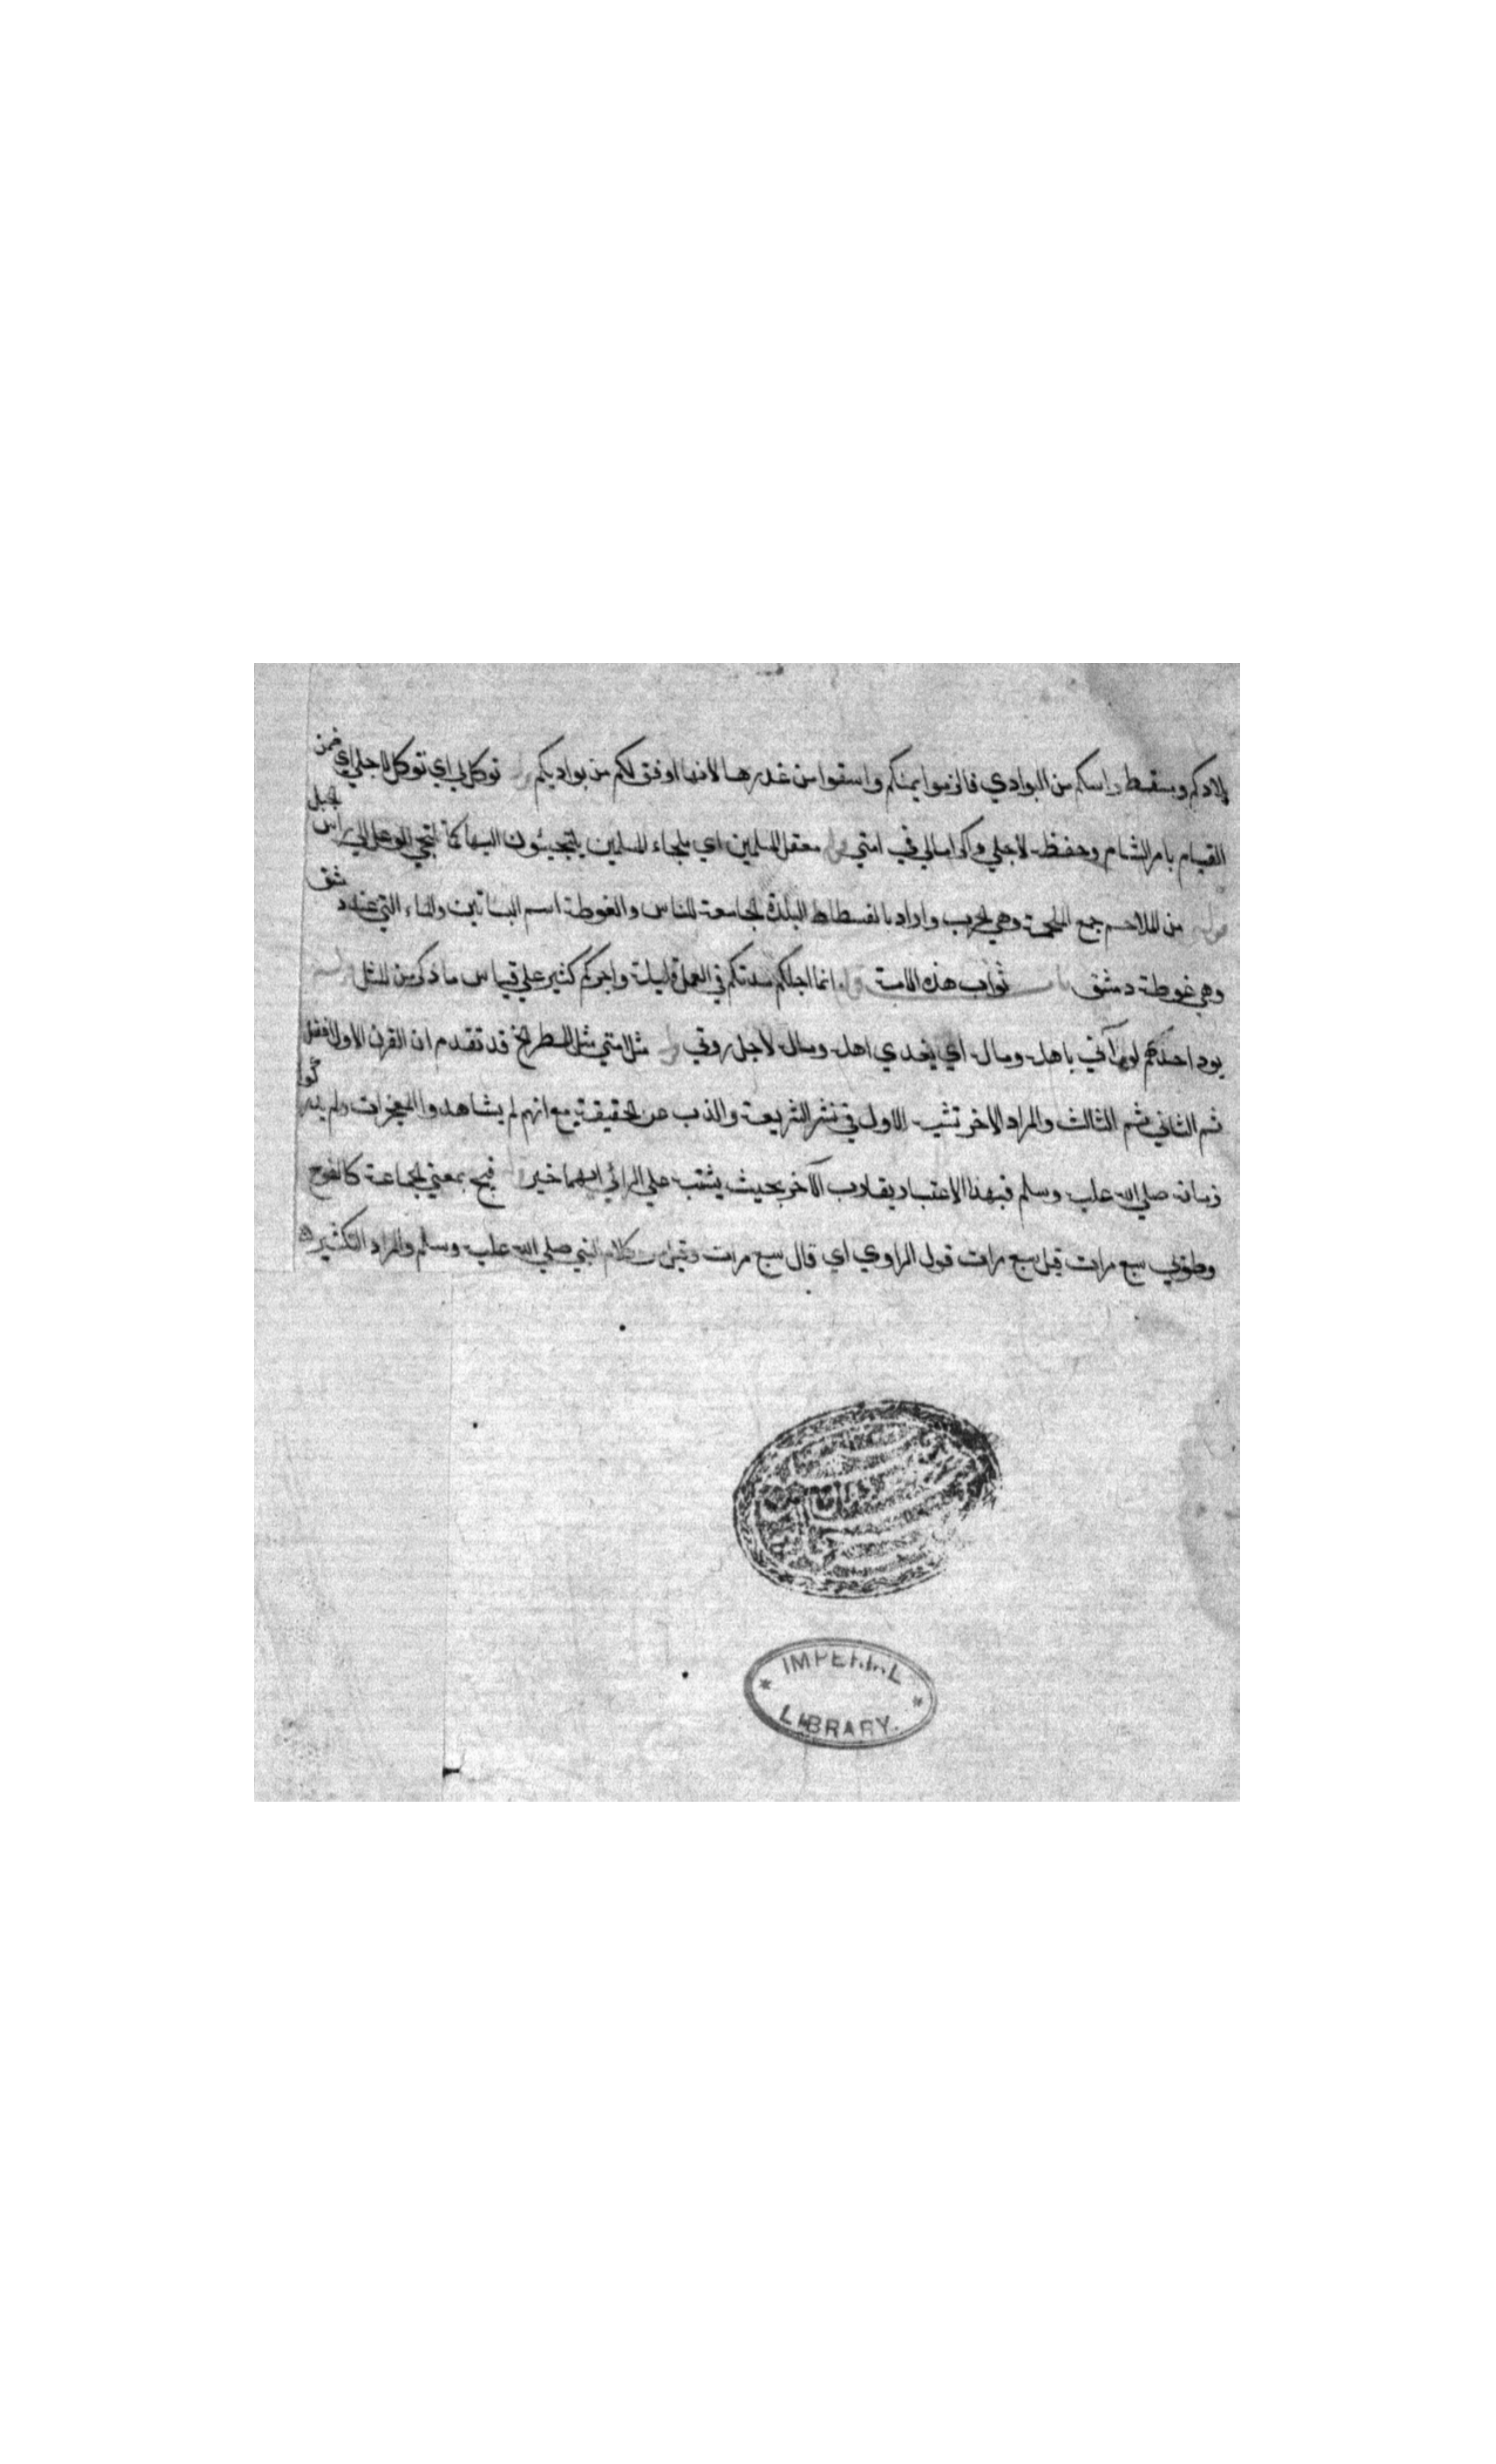 بلادكم ومسقط راسكم من البوادي فالزموا يمنكم واسقوا من غدرها لانها اوفق لكم من بواديكم توكل لي اي توكل لاجلي اي ضمن
القيام بامر الشام وحفظه لاجلي واكراما لي في امتي قوله معقل المسلمين اي ملجاء للمسلمين يلتجيئون اليها كما يلتجي الوعل الي راس الجبل
قوله من الملاحم جمع الملحمة وهي الحرب واراد بالفسطاط البلدة الجامعة للناس والغوطة اسم البساتين والماء التي عند دمشق
وهي غوطة دمشق باب ثواب هذه الامة قوله انما اجلكم مدتكم في العمل قليلة واجركم كثير علي قياس ما ذكر من المثل قوله
يود احدكم لو رآني باهله وماله اي يفدي اهله وماله لاجل رؤتي قوله مثل امتي مثل المطر الخ قد تقدم ان القرن الاول افضل
ثم الثاني ثم الثالث والمراد الاخر تشبه الاول في نشر الشريعة والذب عن الحقيقة مع انهم لم يشاهدوا المعجزات ولم يدركوا
زمانه صلي الله عليه وسلم فبهذا الاعتبار يقارب الآخر بحيث يشتبه علي الرائي ايهما خير فيج بمعني الجماعة كالفوج
وطوبي سبع مرات قيل سبع مرات قول الراوي اي قال سبع مرات وقيل من كلام النبي صلي الله عليه وسلم والمراد التكثير
IMPERIAL
LIBRARY.